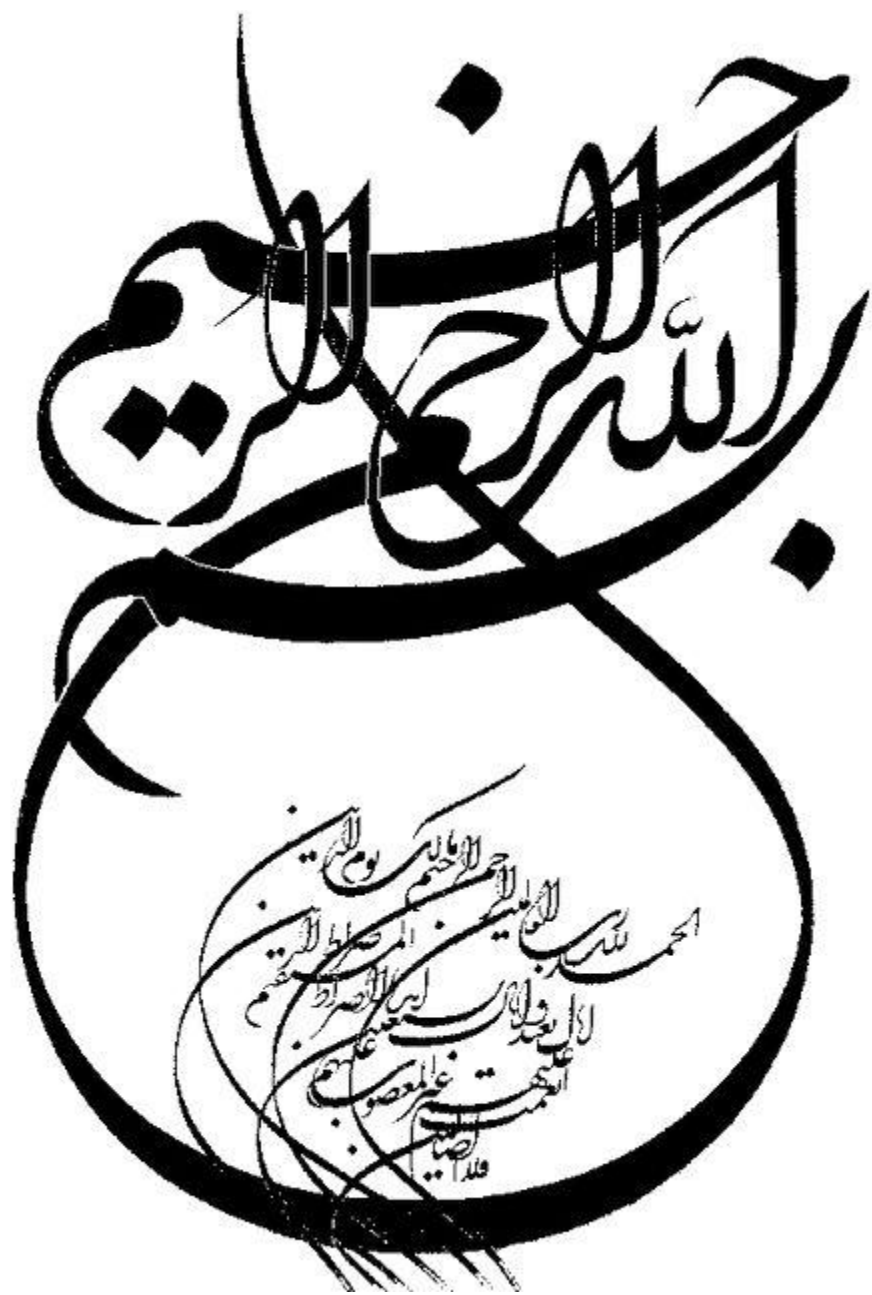 بسم الله الرحمن الرحيم
الحمد لله رب العالمين
الرحمن الرحيم مالك يوم الدين
اياك نعبد و اياك نستعين
اهدنا الصراط المستقيم
صراط الذين
انعمت عليهم غير المغضوب عليهم
ولا الضالين